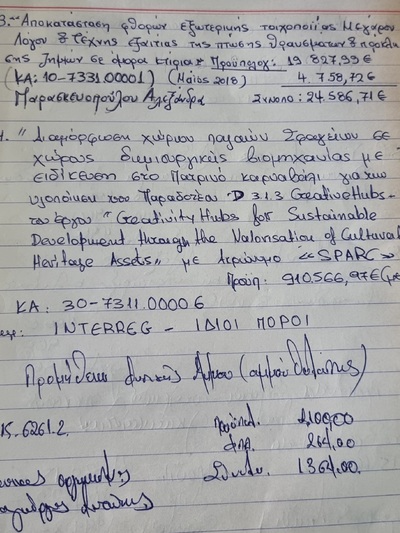 3. Αποκατάσταση φθορών εξωτερικής τοιχοποιίας Μεγάρου
Λόγου & Τέχνης εξαιτίας της πτώσης θραυσμάτων & πρόκλη
σης ζημιών σε όμορα κτίρια Προϋπολογ: 19 827,99 €
(ΚΑ: 10-7331.00001) (Μάιος 2018) 4.758,72 €
Παρασκευοπούλου Αλεξάνδρα Σύνολο: 24.586,71 €
"Διαμόρφωση χώρου παλαιών Σφαγείων σε
χώρους δημιουργικής βιομηχανίας με
ειδίκευση στο Πατρινό καρναβάλι για την
υλοποίηση του Παραδοτέου D 3.1.3 CreativeHubs-
του έργου "Creativity Hubs for Sustainable
Development through the Valorisation of Cultural
Heritage Assets" με Ακρώνυμο «SPARC»
Προϋπ: 910.566,97€
ΚΑ: 30-7311.0000 6
INTERREG - ΙΔΙΟΙ ΠΟΡΟΙ
Προμήθεια Άμμου (αμμοθαλάσσης)
Κ5.6261.2.
264,00
1364,00.